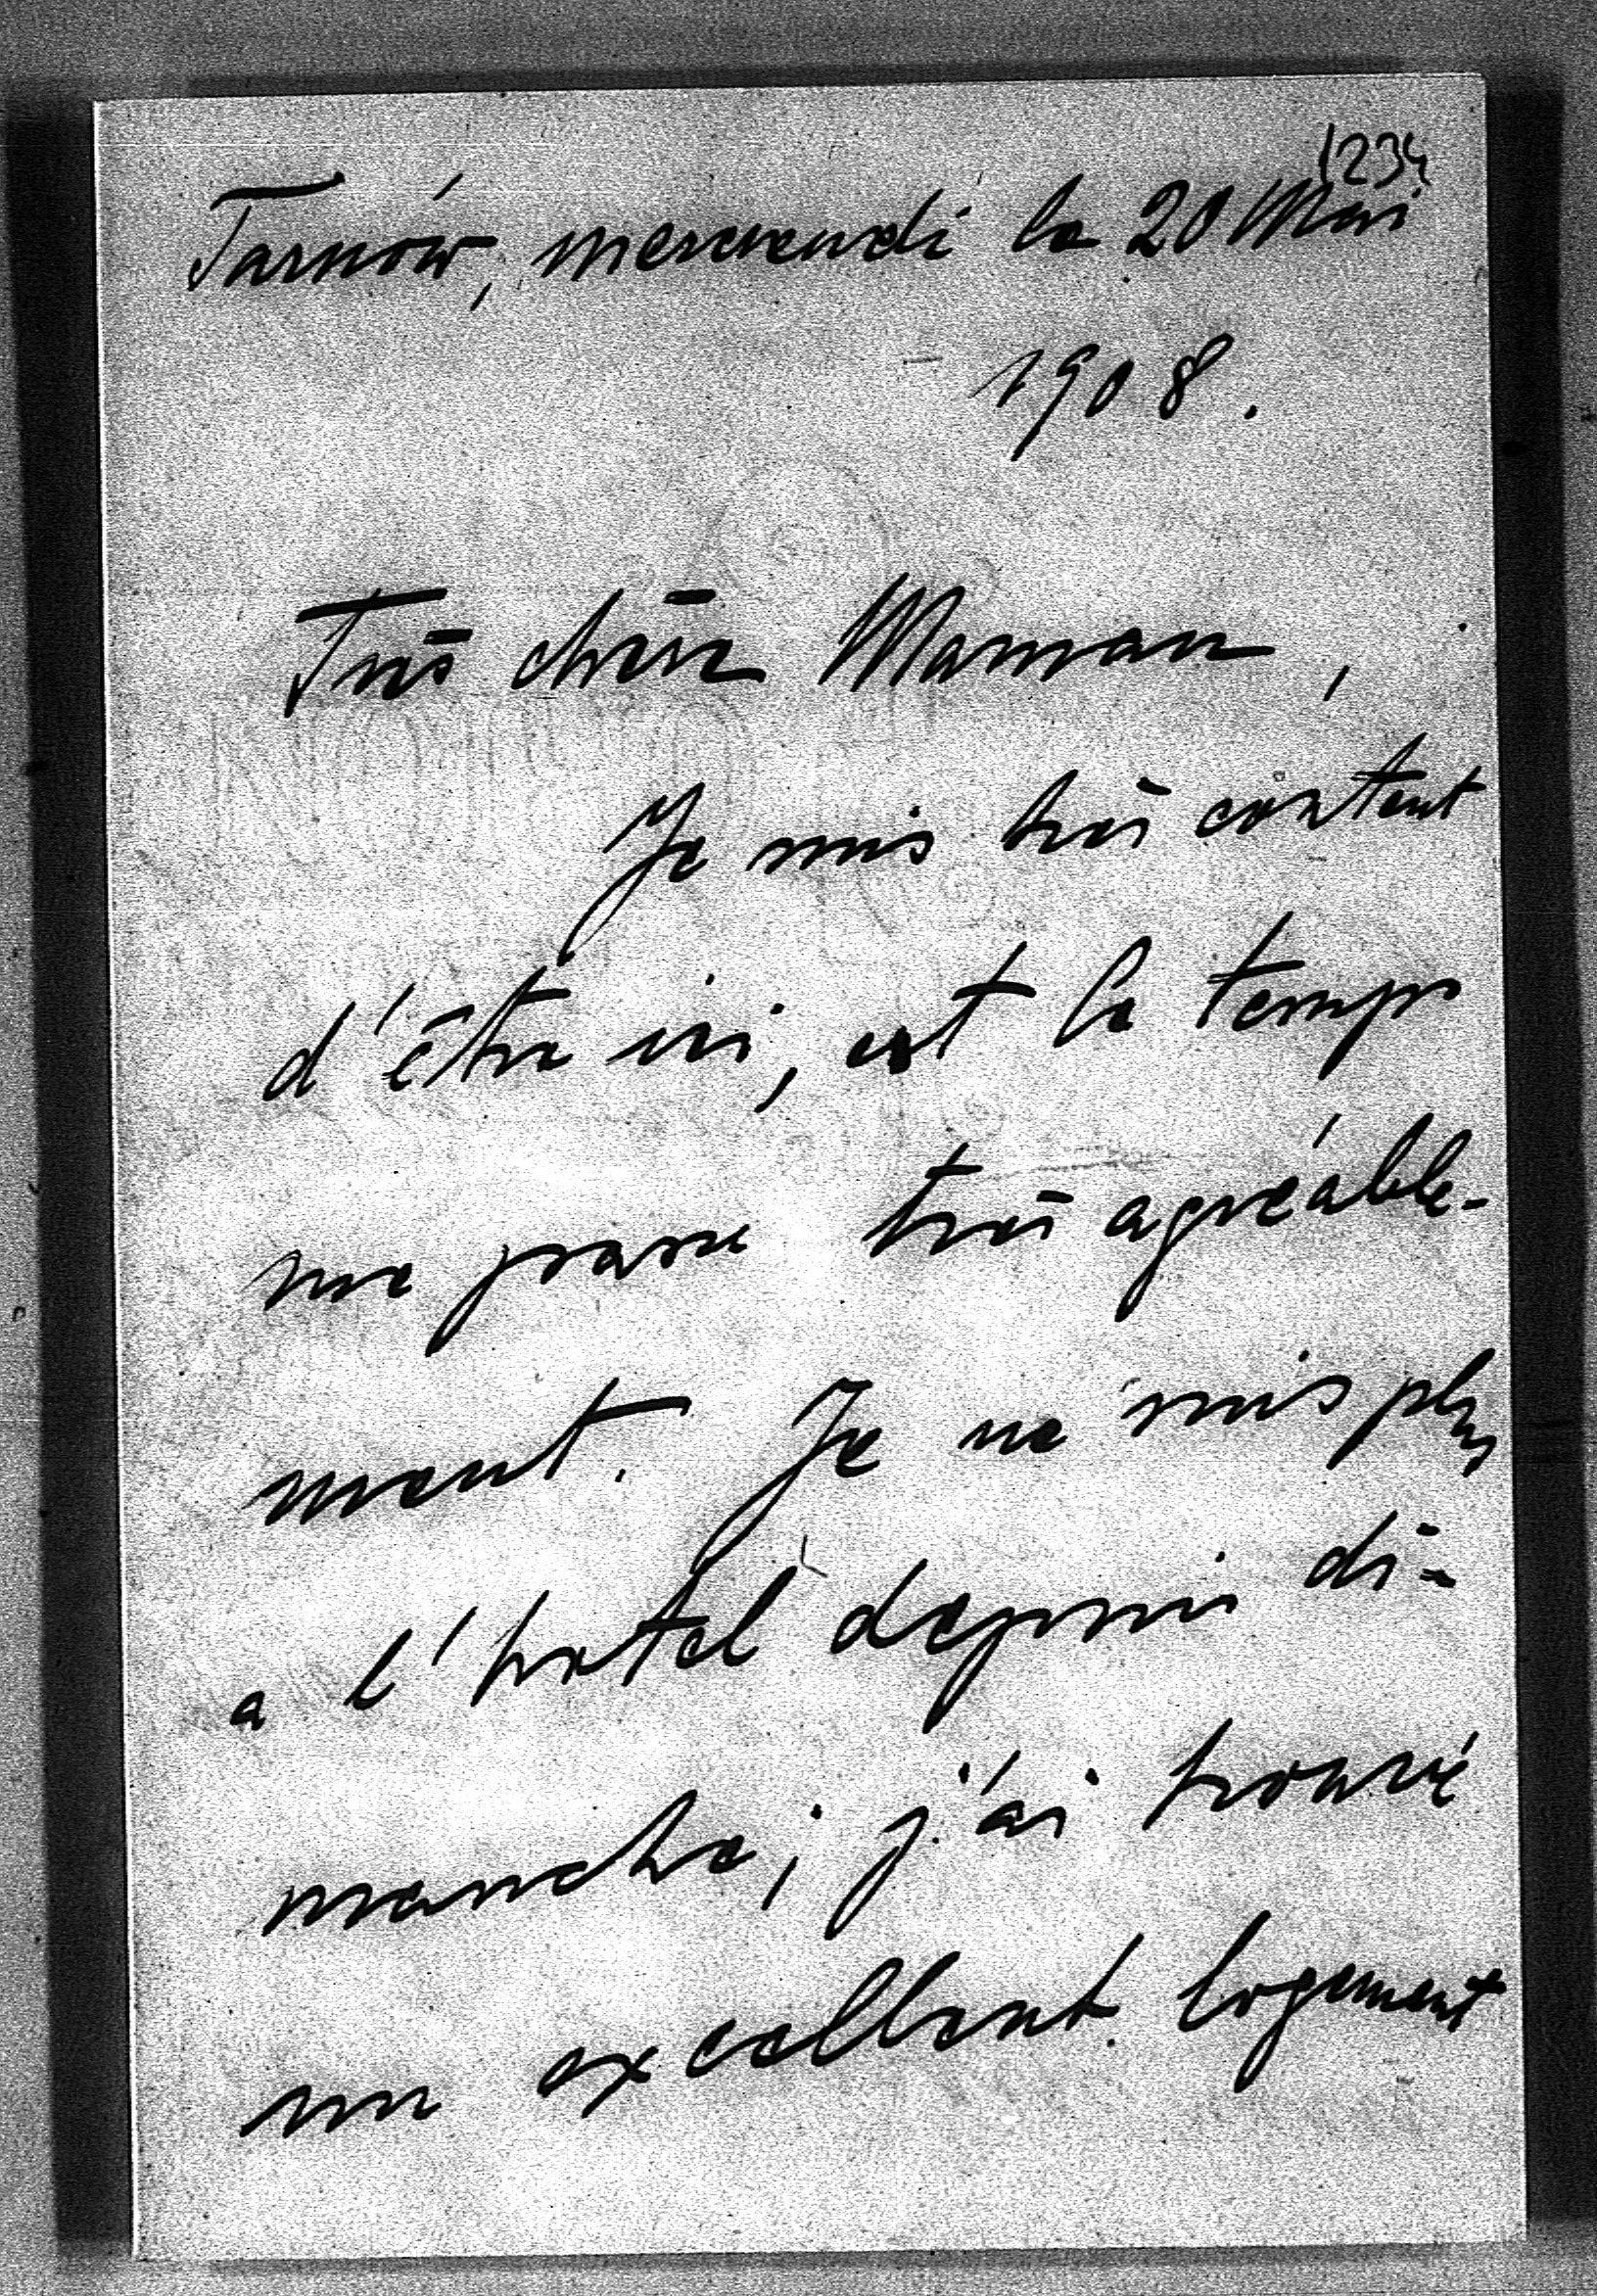 1234
Tarnów, mercredi le 20 Mai
1908.
Très chère Maman,
Je suis très content
d'être ici, et le temps
me passe très agréable-
ment. Je ne suis plus
a l'hotel depuis di-
manche; j'ai trouvé
un excellent logement